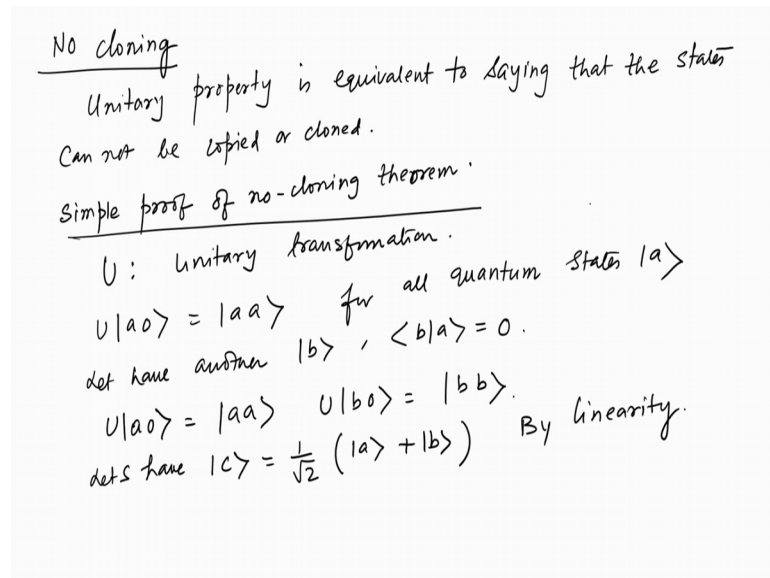 No cloning
Unitary property is equivalent to saying that the states
Can not be copied or cloned.
Simple proof of no-cloning theorem.
U: Unitary transfmation.
U|a0> = |aa> for all quantum states |a>
Let have another |b>, <b|a> = 0.
U|a0> = |aa> U|b0> = |bb>.
Lets have |c> = 1/√2 (|a> + |b>) By linearity.